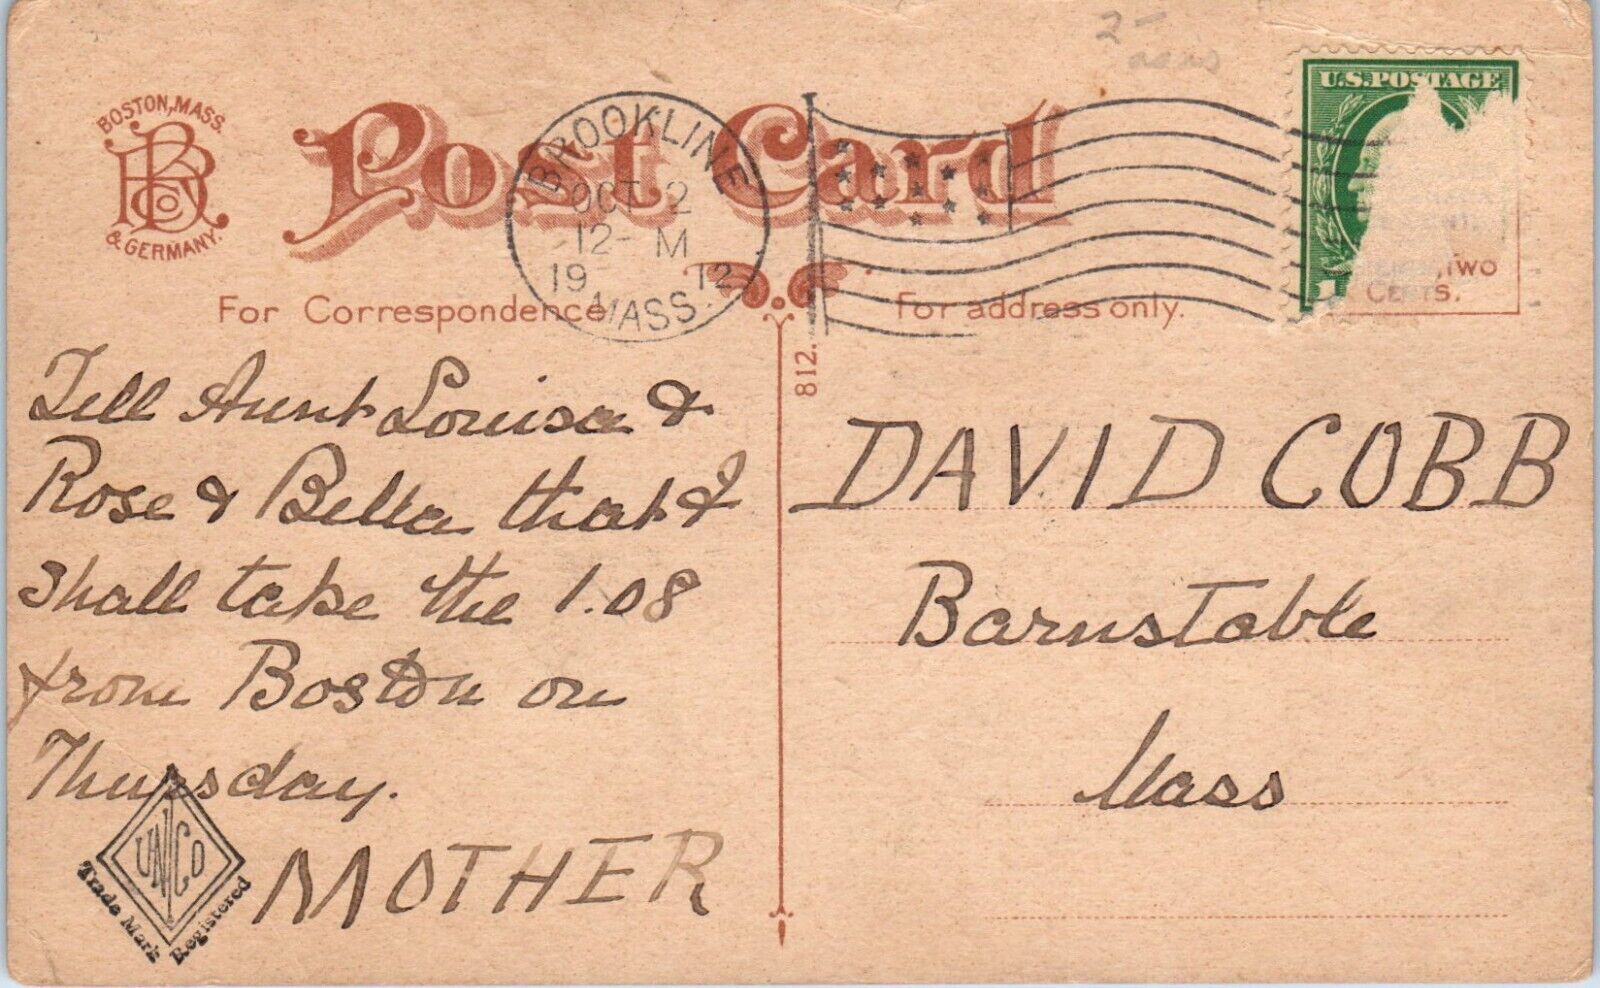 2-
BOSTON, MASS.
BR Co
& GERMANY.
Post Card
BROOKLINE
OCT 2
12- M
19 12
MASS.
U.S. POSTAGE
TWO
CENTS.
For Correspondence
For address only.
812.
Tell Aunt Louisa &
Rose & Bella that I
shall take the 1.08
from Boston on
Thursday.
MOTHER
UNCO
Trade Mark Registered
DAVID COBB
Barnstable
Mass